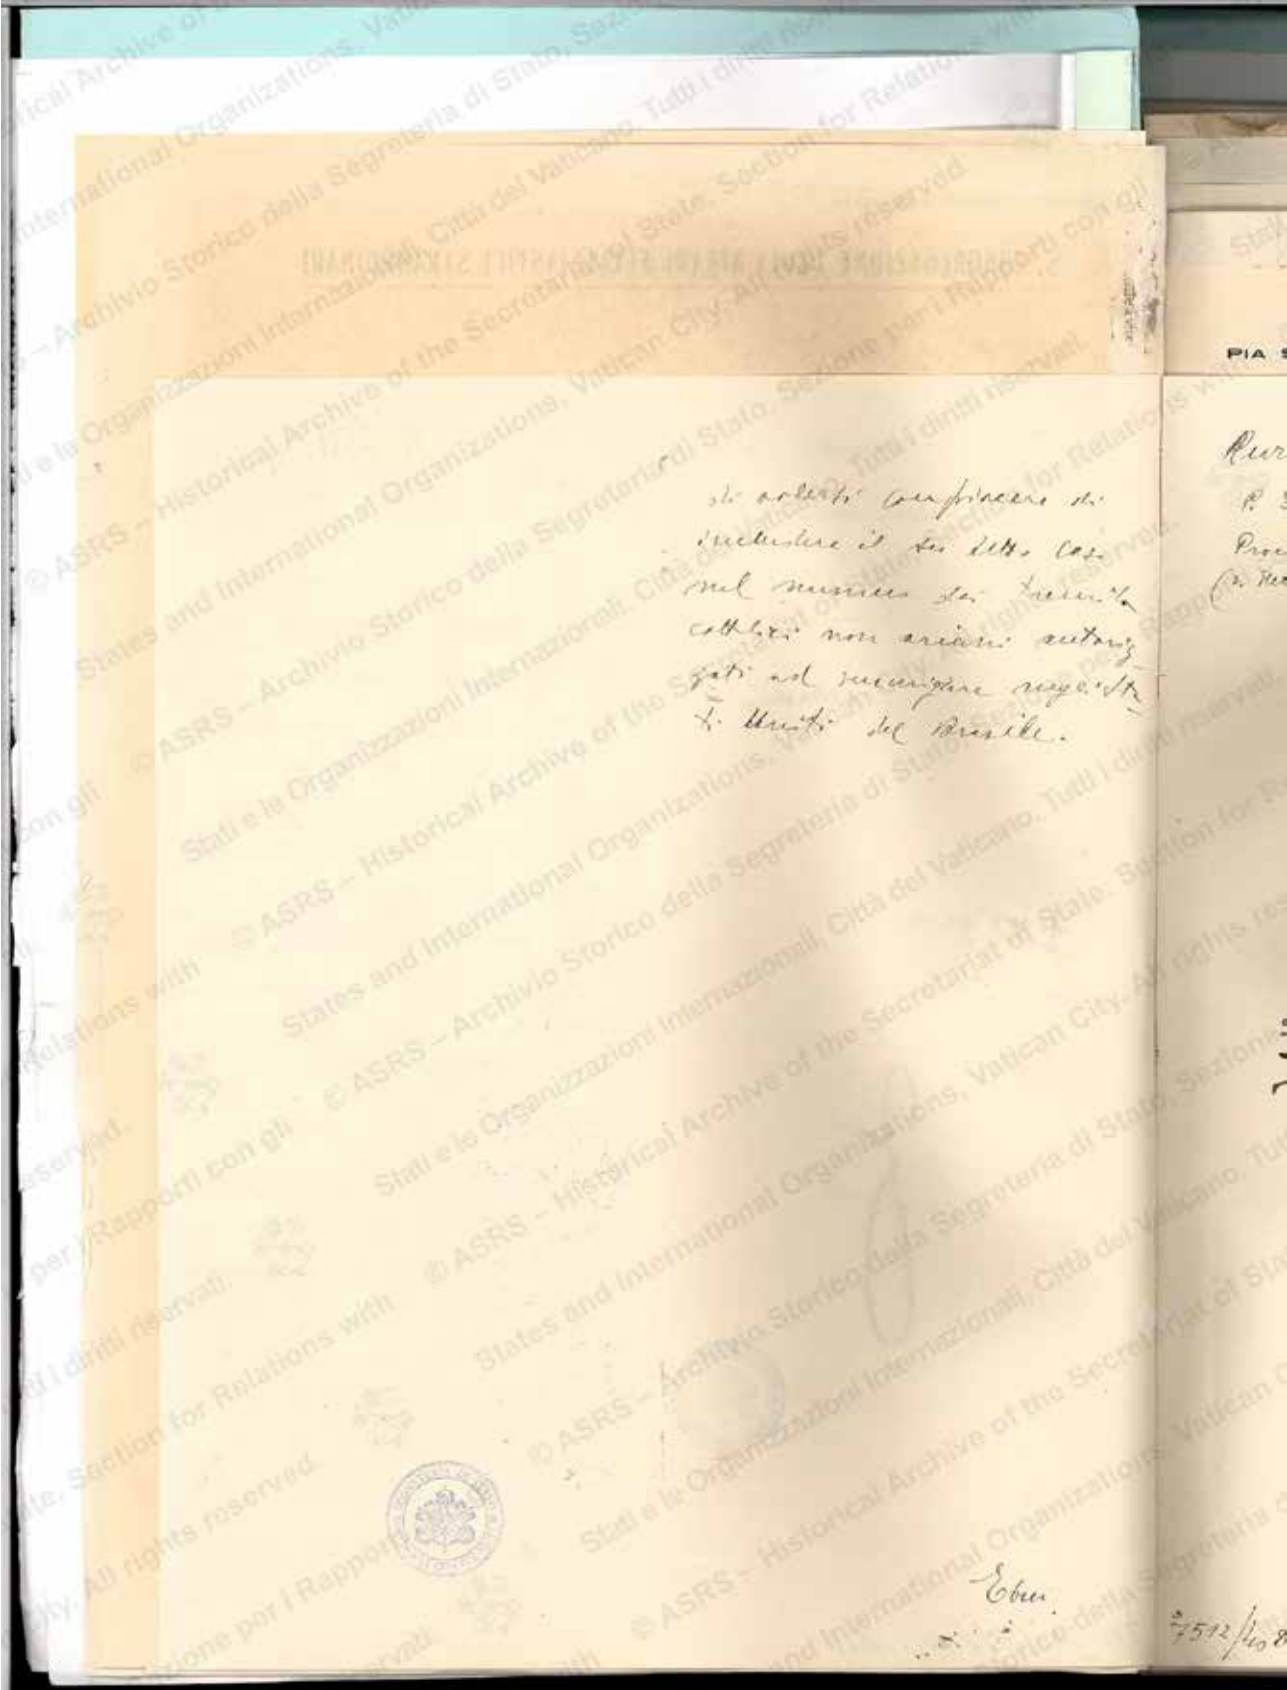 di volersi compiacere di
includere il su detto caso
nel numero dei tremila
cattolici non ariani autoriz-
zati ad immigrare negli Sta-
ti Uniti del Brasile.
Ebrei.
PIA S
P.
7512/
© ASRS – Archivio Storico della Segreteria di Stato, Sezione per i Rapporti con gli
Stati e le Organizzazioni Internazionali, Città del Vaticano. Tutti i diritti riservati.
© ASRS – Historical Archive of the Secretariat of State, Section for Relations with
States and International Organizations, Vatican City. All rights reserved.